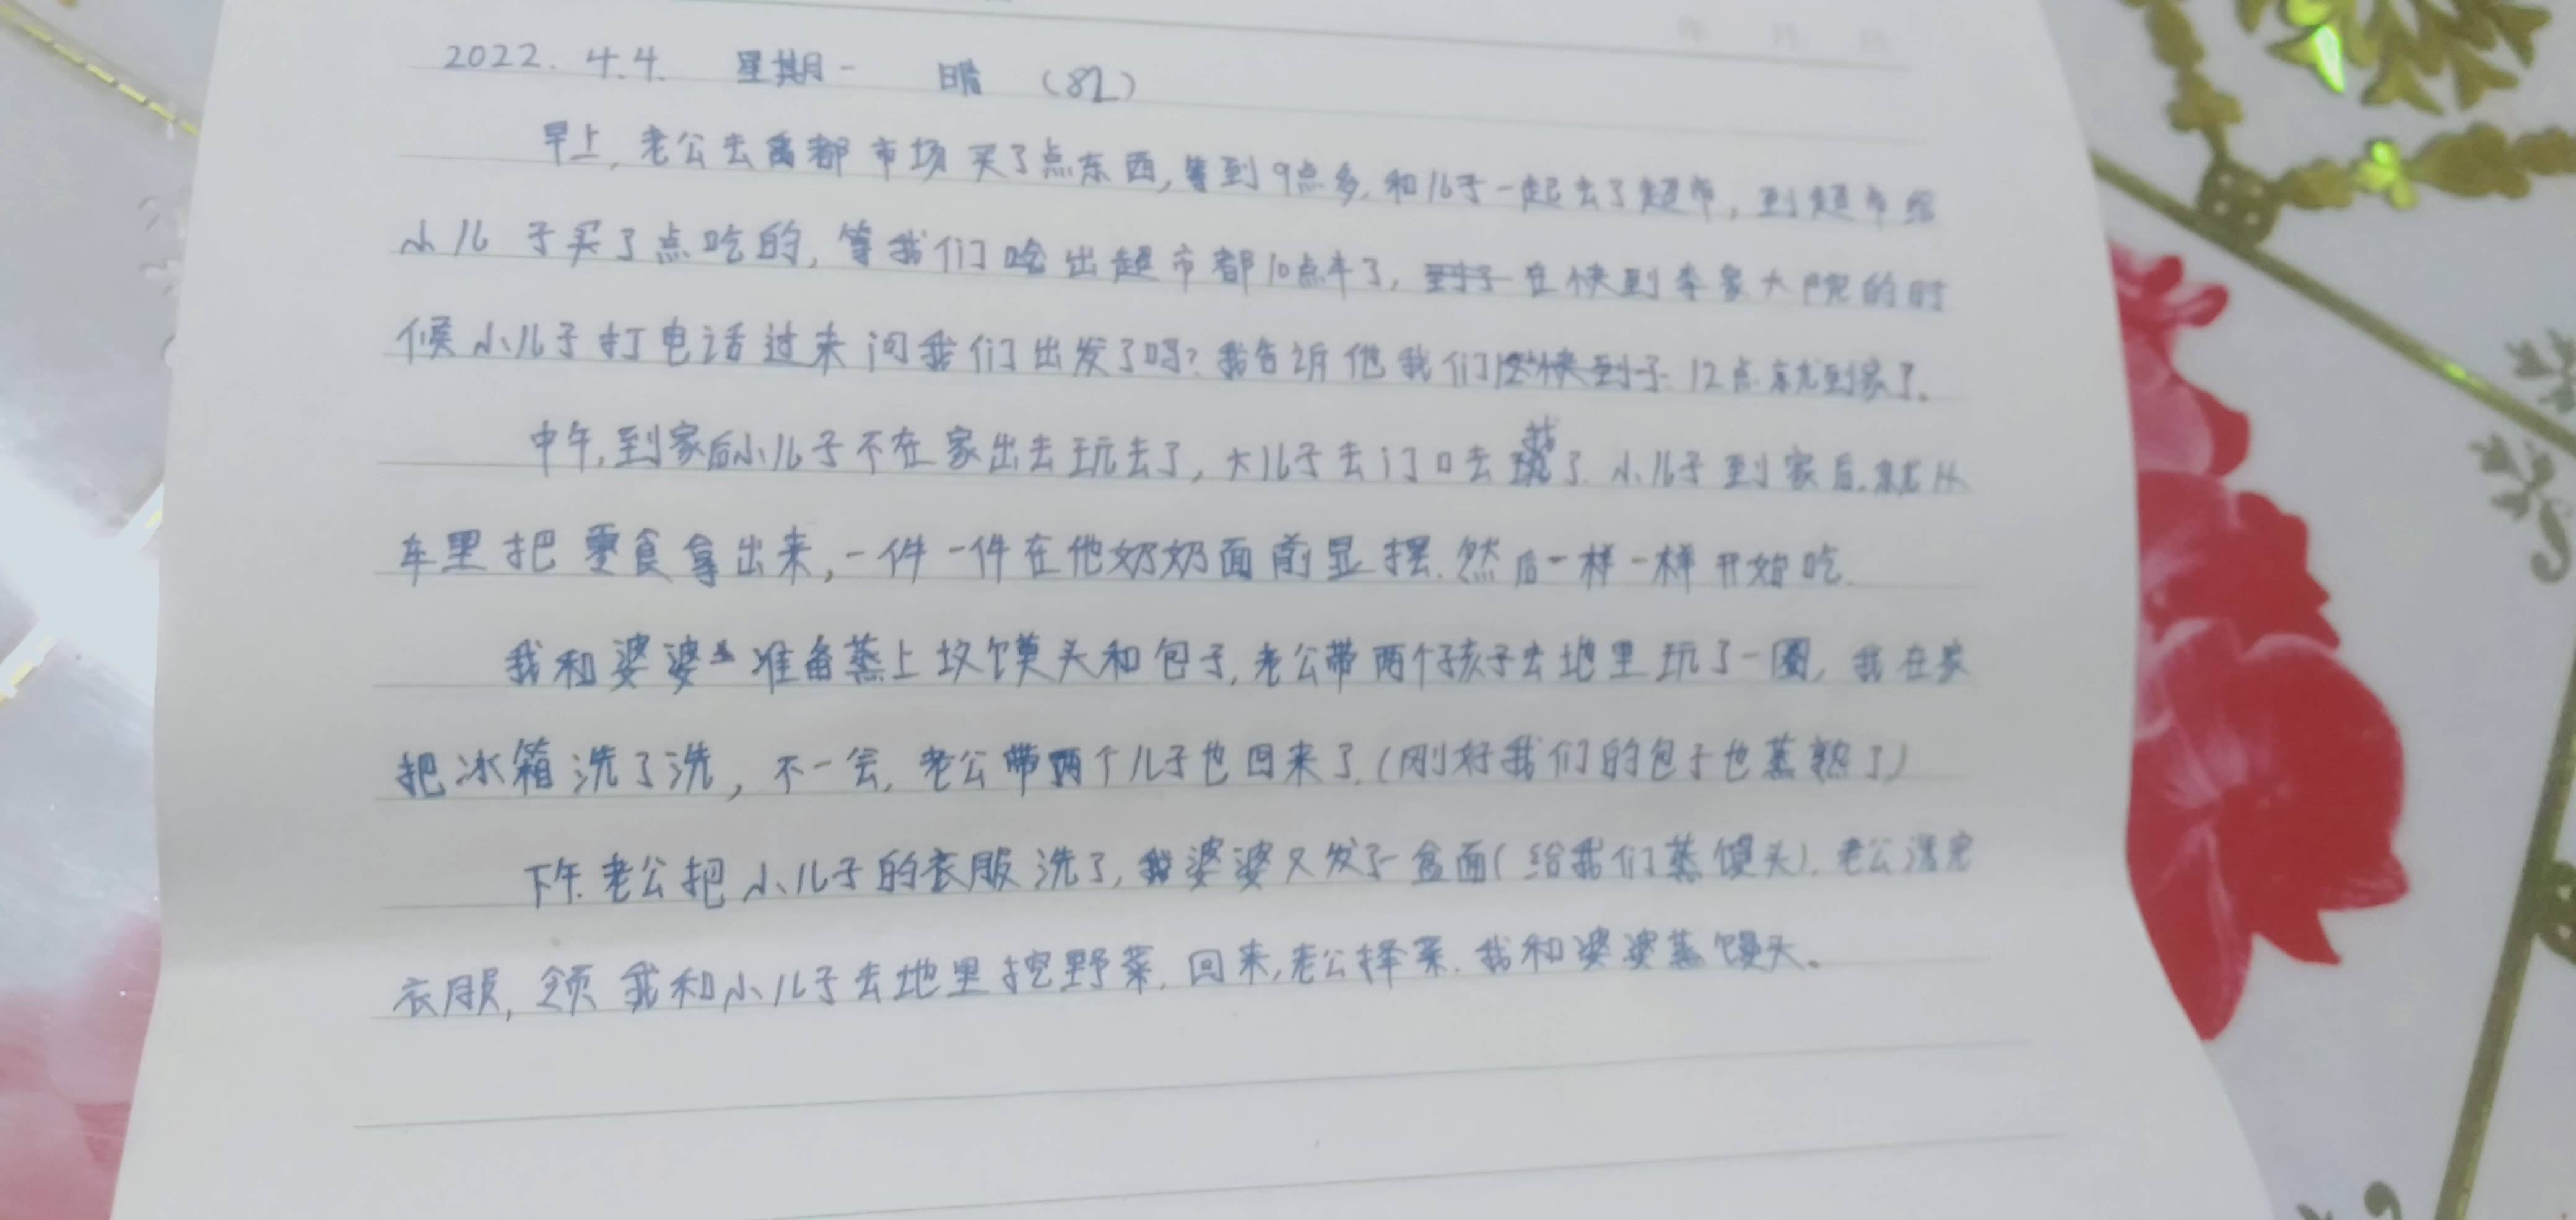 2022. 4.4. 星期一 晴 (82)
早上,老公去禹都市场买了点东西,等到9点多,和儿子一起去了超市,到超市给
小儿子买了点吃的,等我们 出超市都10点半了,在快到李家大院的时
候小儿子打电话过来问我们出发了吗?我告诉他我们 12点就到家了。
中午,到家后小儿子不在家出去玩去了,大儿子去门口去找了.小儿子到家后.就从
车里把零食拿出来,一件一件在他奶奶面前显摆.然后一样一样开始吃.
我和婆婆准备蒸上坟馍头和包子,老公带两个孩子去地里玩了一圈,我在家
把冰箱洗了洗,不一会,老公带两个儿子也回来了.(刚好我们的包子也蒸熟了)
下午.老公把小儿子的衣服洗了,我婆婆又发了一盒面(给我们蒸馍头).老公洗完
衣服,领我和小儿子去地里挖野菜.回来,老公择菜.我和婆婆蒸馒头。